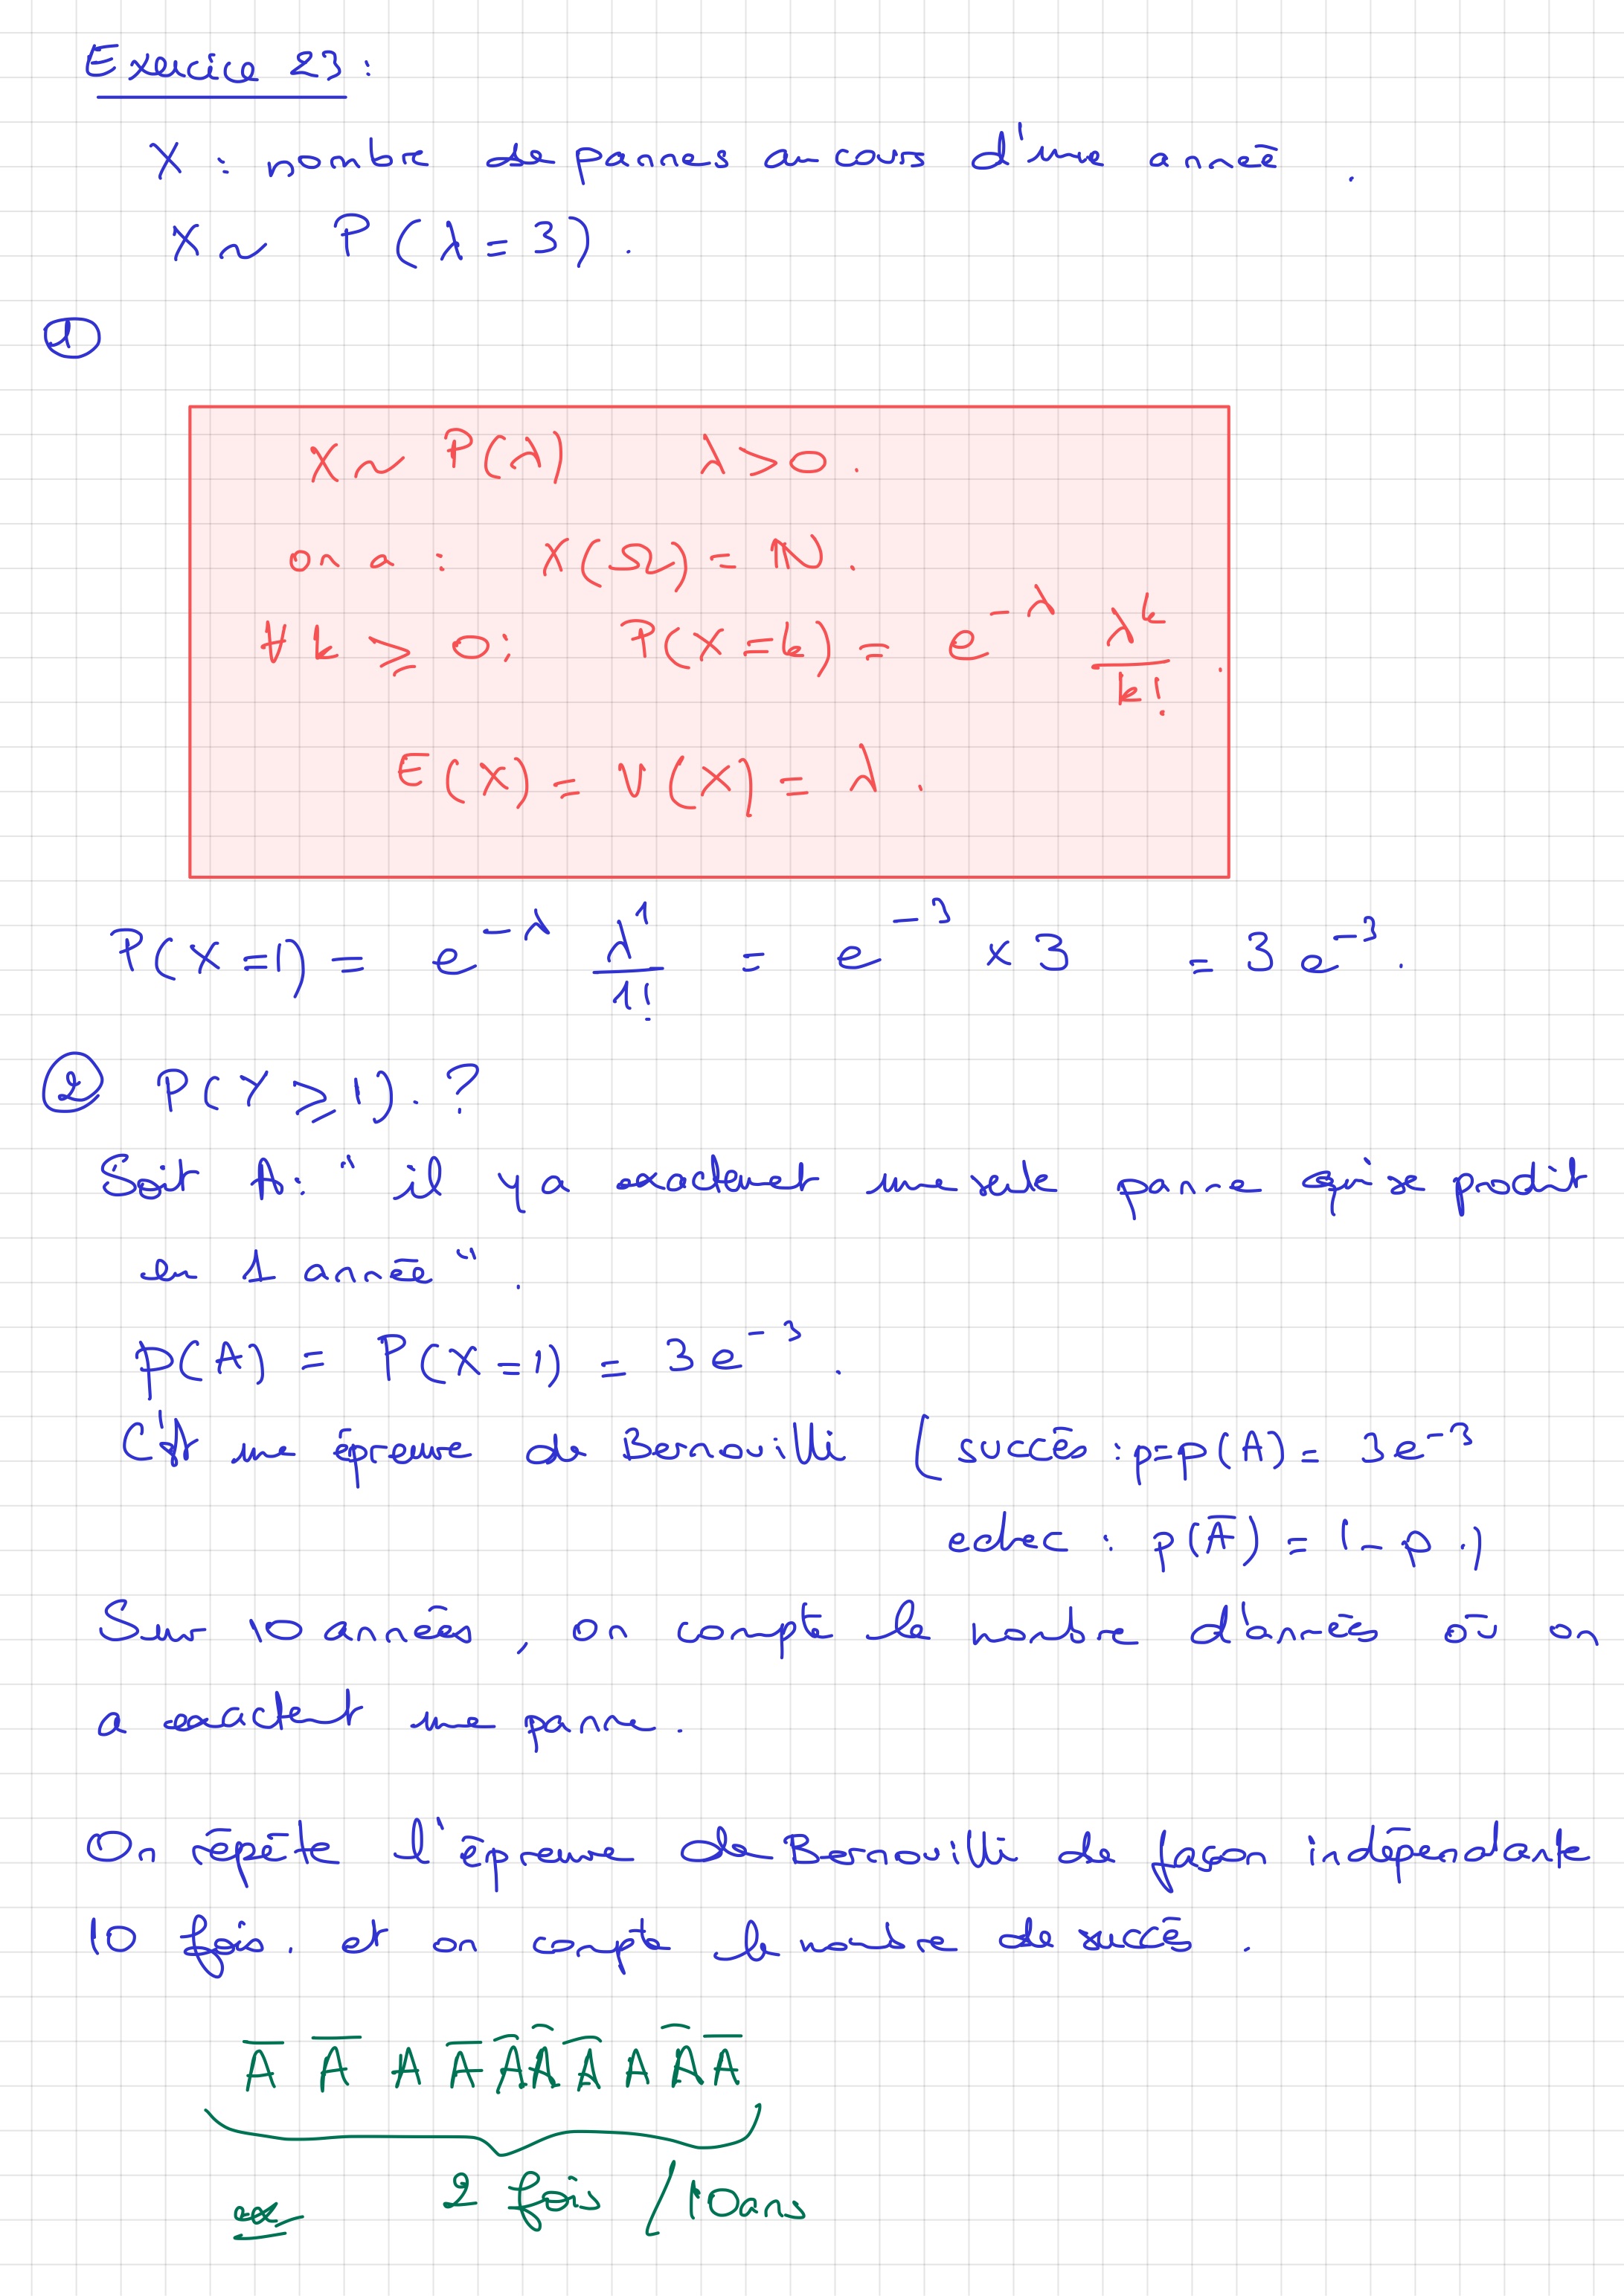 Exercice 23 :
X : nombre de pannes au cours d'une année .
X ~ P ( λ = 3 ) .
1
X ~ P(λ) λ > 0 .
on a : X(Ω) = ℕ .
∀ k ⩾ 0 : P(X = k) = e^{-λ} λ^k / k! .
E(X) = V(X) = λ .
P(X = 1) = e^{-λ} λ^1 / 1! = e^{-3} × 3 = 3 e^{-3} .
2 P(Y ⩾ 1) . ?
Soit A : " il y a exactement une seule panne qui se produit
en 1 année " .
p(A) = P(X = 1) = 3 e^{-3} .
C'est une épreuve de Bernouilli ( succès : p = p(A) = 3 e^{-3}
echec : p(A̅) = 1 - p . )
Sur 10 années , on compte le nombre d'années où on
a exactent une panne .
On répète l'épreuve de Bernouilli de façon indépendante
10 fois . et on compte le nombre de succès .
A̅ A̅ A A̅ A̅ A̅ A̅ A A̅ A̅
ex 2 fois / 10 ans